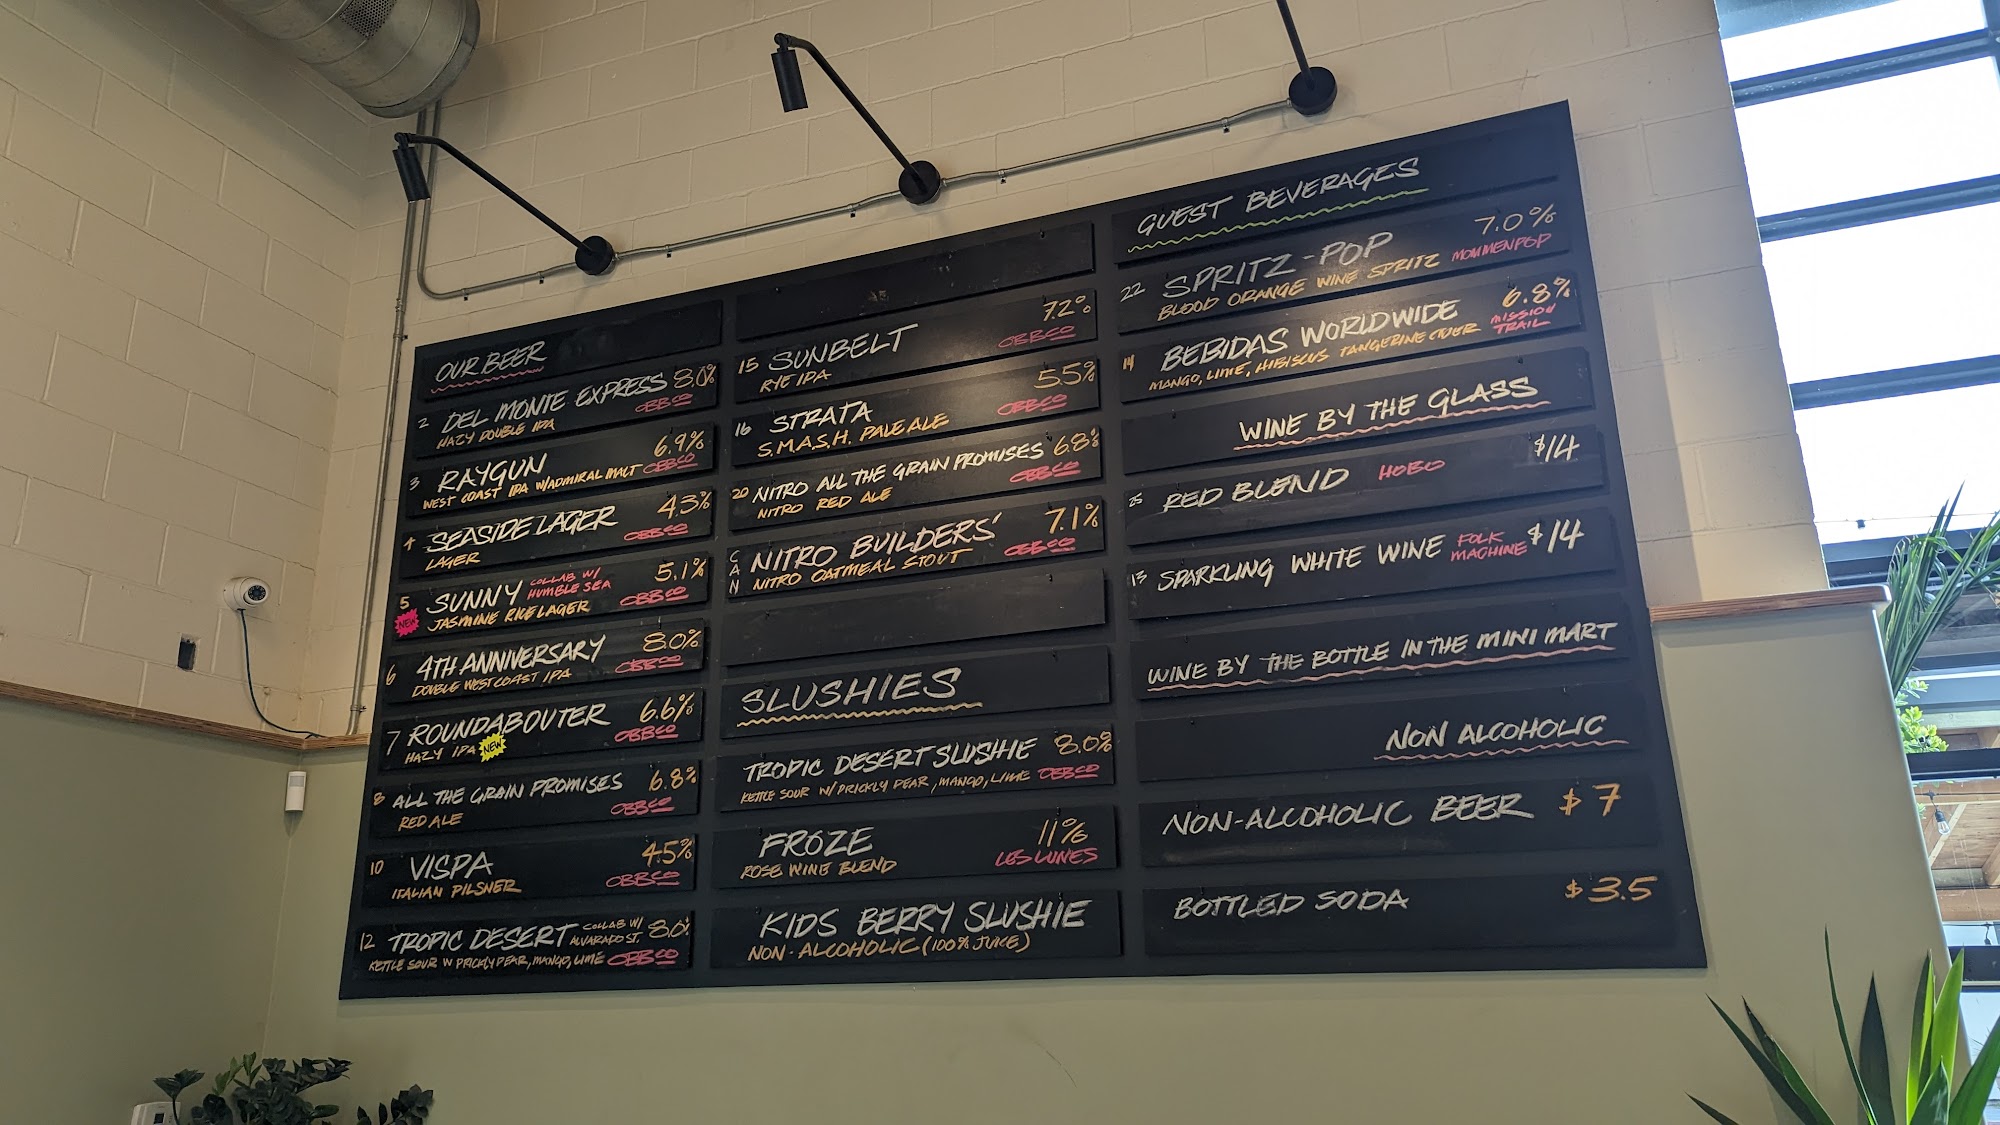 OUR BEER
2 DEL MONTE EXPRESS 8.0%
HAZY DOUBLE IPA OBBCO
3 RAYGUN 6.9%
WEST COAST IPA W/ADMIRAL MALT OBBCO
4 SEASIDE LAGER 4.3%
LAGER OBBCO
5 SUNNY COLLAB W/ HUMBLE SEA 5.1%
NEW JASMINE RICE LAGER OBBCO
6 4TH ANNIVERSARY 8.0%
DOUBLE WEST COAST IPA OBBCO
7 ROUNDABOUTER 6.6%
HAZY IPA NEW OBBCO
8 ALL THE GRAIN PROMISES 6.8%
RED ALE OBBCO
10 VISPA 4.5%
ITALIAN PILSNER OBBCO
12 TROPIC DESERT COLLAB W/ ALVARADO ST. 8.0%
KETTLE SOUR W PRICKLY PEAR, MANGO, LIME OBBCO
15 SUNBELT 7.2%
RYE IPA OBBCO
16 STRATA 5.5%
S.M.A.S.H. PALE ALE OBBCO
20 NITRO ALL THE GRAIN PROMISES 6.8%
NITRO RED ALE OBBCO
CAN NITRO BUILDERS' 7.1%
NITRO OATMEAL STOUT OBBCO
SLUSHIES
TROPIC DESERT SLUSHIE 8.0%
KETTLE SOUR W/ PRICKLY PEAR, MANGO, LIME OBBCO
FROZE 11%
ROSE WINE BLEND LES LUNES
KIDS BERRY SLUSHIE
NON-ALCOHOLIC (100% JUICE)
GUEST BEVERAGES
22 SPRITZ-POP 7.0%
BLOOD ORANGE WINE SPRITZ MOMMENPOP
14 BEBIDAS WORLDWIDE 6.8%
MANGO, LIME, HIBISCUS TANGERINE CIDER MISSION TRAIL
WINE BY THE GLASS
25 RED BLEND HOBO $14
13 SPARKLING WHITE WINE FOLK MACHINE $14
WINE BY THE BOTTLE IN THE MINI MART
NON ALCOHOLIC
NON-ALCOHOLIC BEER $7
BOTTLED SODA $3.5